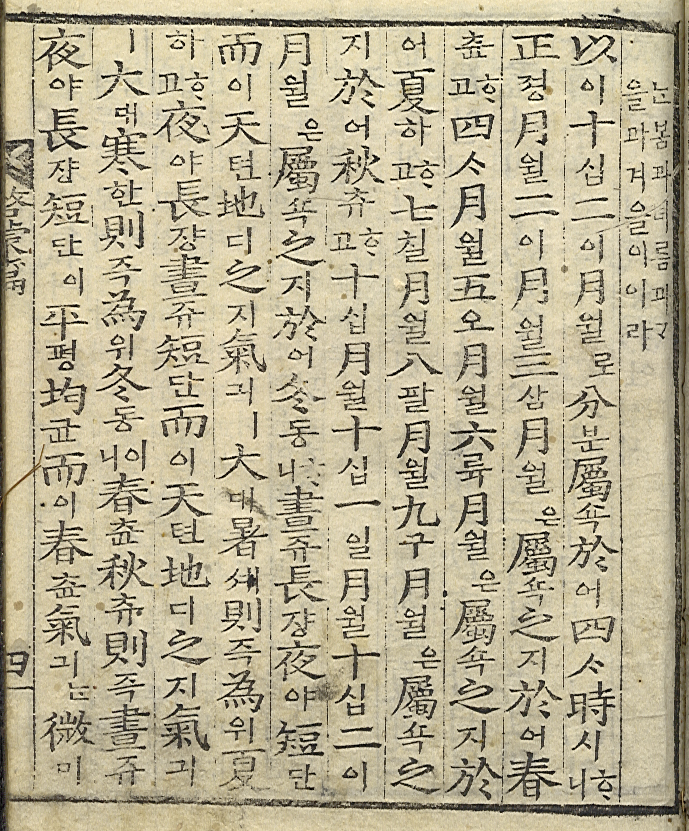 는봄과녀름과ᄀᆞ
을과겨을이이라
以이十십二이月월로分분屬쇽於어四ᄉᆞ時시ᄒᆞ니
正졍月월二이月월三삼月월은屬쇽之지於어春
츈ᄒᆞ고四ᄉᆞ月월五오月월六륙月월은屬쇽之지於
어夏하ᄒᆞ고七칠月월八팔月월九구月월은屬쇽之
지於어秋츄ᄒᆞ고十십月월十십一일月월十십二이
月월은屬쇽之지於어冬동ᄒᆞ니晝쥬長쟝夜야短단
而이天텬地디之지氣긔ㅣ大대暑셔則즉為위夏
하ᄒᆞ고夜야長쟝晝쥬短단而이天텬地디之지氣긔
ㅣ大대寒한則즉為위冬동이니春츈秋츄則즉晝쥬
夜야長쟝短단이平평均균而이春츈氣긔ᄂᆞᆫ微미
啓蒙篇
四